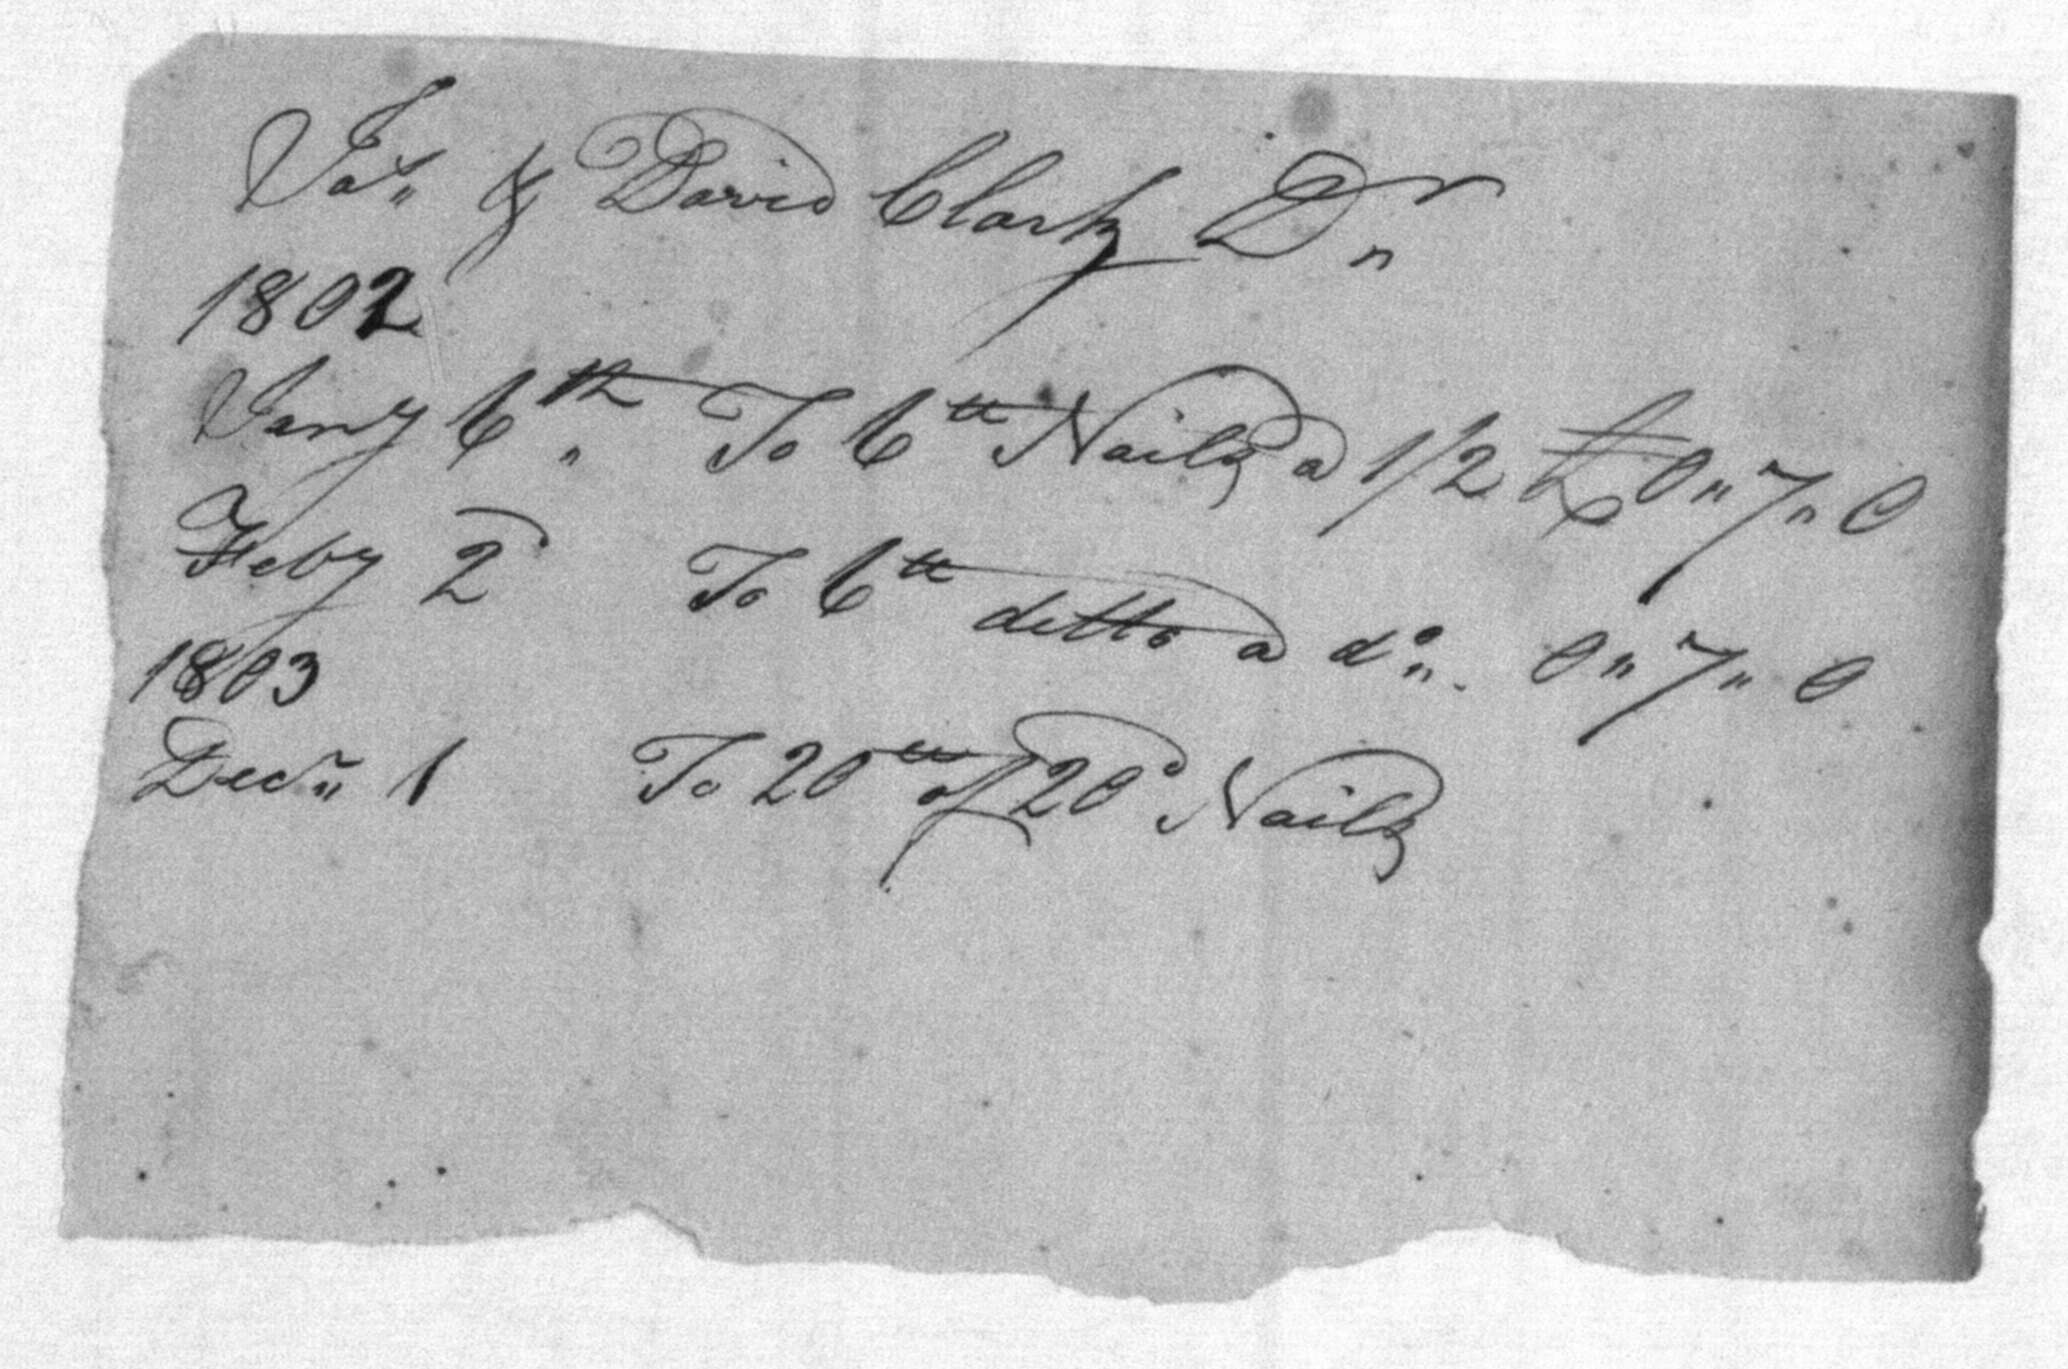 Jas„ & David Clark Dr„
1802
Jany 6th„ To 6 lb Nails a 1/2 £0„7„0
Feby 2 To 6 lb ditto a do„. 0„7„0
1803
Decr„ 1 To 20 lb of 20d Nails